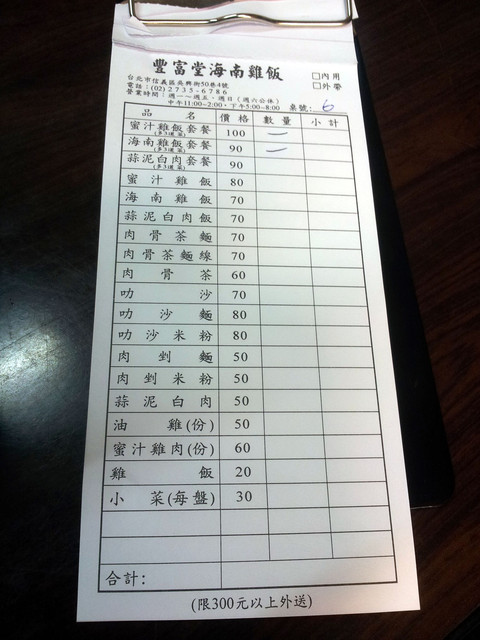 豐富堂海南雞飯
□內用
□外帶
台北市信義區吳興街50巷4號
電話：(02)2735-6786
營業時間：週一~週五、週日（週六公休）
中午11:00~2:00，下午5:00~8:00 桌號：6
品名 價格 數量 小計
蜜汁雞飯套餐 100 一
(多3道菜)
海南雞飯套餐 90 一
(多3道菜)
蒜泥白肉套餐 90
(多3道菜)
蜜汁雞飯 80
海南雞飯 70
蒜泥白肉飯 70
肉骨茶麵 70
肉骨茶麵線 70
肉骨茶 60
叻沙 70
叻沙麵 80
叻沙米粉 80
肉剉麵 50
肉剉米粉 50
蒜泥白肉 50
油雞(份) 50
蜜汁雞肉(份) 60
雞飯 20
小菜(每盤) 30
合計：
(限300元以上外送)